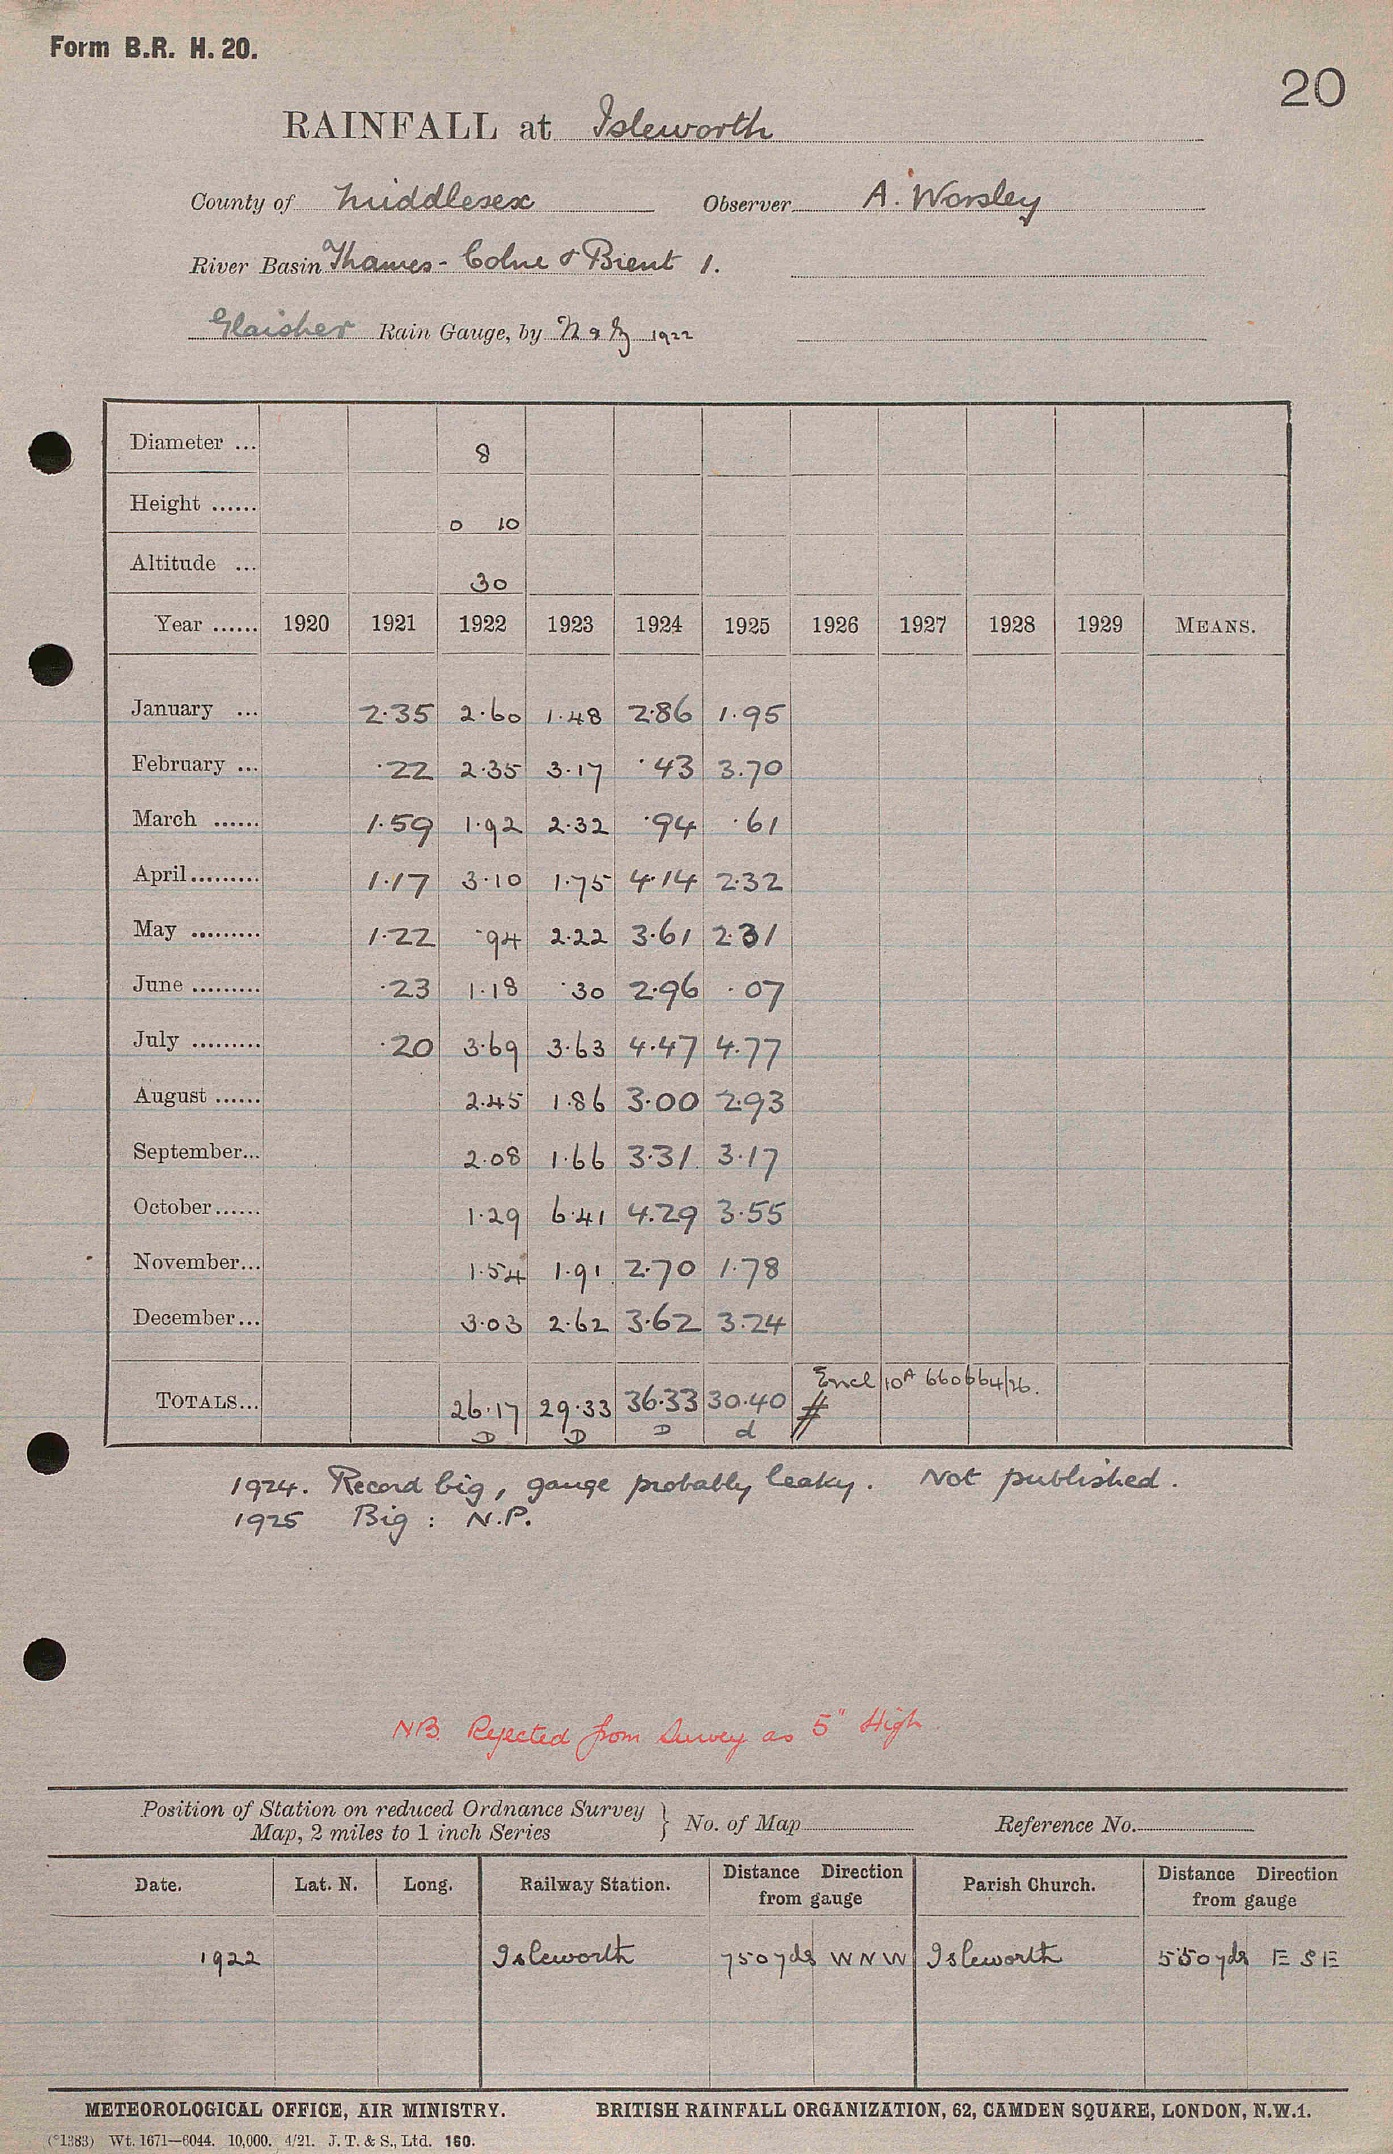 Form B.R. H. 20.
20
RAINFALL at Isleworth
County of Middlesex Observer A. Worsley
River Basin Thames - Colne & Brent 1.
Glaisher Rain Gauge, by N & Z 1922
Diameter ... 8
Height ...... 0 10
Altitude ... 30
Year ...... 1920 1921 1922 1923 1924 1925 1926 1927 1928 1929 MEANS.
January ... 2.35 2.60 1.48 2.86 1.95
February ... .22 2.35 3.17 .43 3.70
March ...... 1.59 1.92 2.32 .94 .61
April ......... 1.17 3.10 1.75 4.14 2.32
May ......... 1.22 .94 2.22 3.61 2.31
June ......... .23 1.18 .30 2.96 .07
July ......... .20 3.69 3.63 4.47 4.77
August ...... 2.45 1.86 3.00 2.93
September... 2.08 1.66 3.31 3.17
October...... 1.29 6.41 4.29 3.55
November... 1.54 1.91 2.70 1.78
December... 3.03 2.62 3.62 3.24
Encl 10A 660664/26.
TOTALS... 26.17 29.33 36.33 30.40 #
D D D d
1924. Record big, gauge probably leaky. Not published.
1925 Big : N.P.
NB. Rejected from Survey as 5" High
Position of Station on reduced Ordnance Survey Map, 2 miles to 1 inch Series } No. of Map Reference No.
Date. Lat. N. Long. Railway Station. Distance Direction from gauge Parish Church. Distance Direction from gauge
1922 Isleworth 750 yds W N W Isleworth 550 yds E S E
METEOROLOGICAL OFFICE, AIR MINISTRY. BRITISH RAINFALL ORGANIZATION, 62, CAMDEN SQUARE, LONDON, N.W.1.
(*1383) Wt. 1671—6044. 10,000. 4/21. J. T. & S., Ltd. 160.